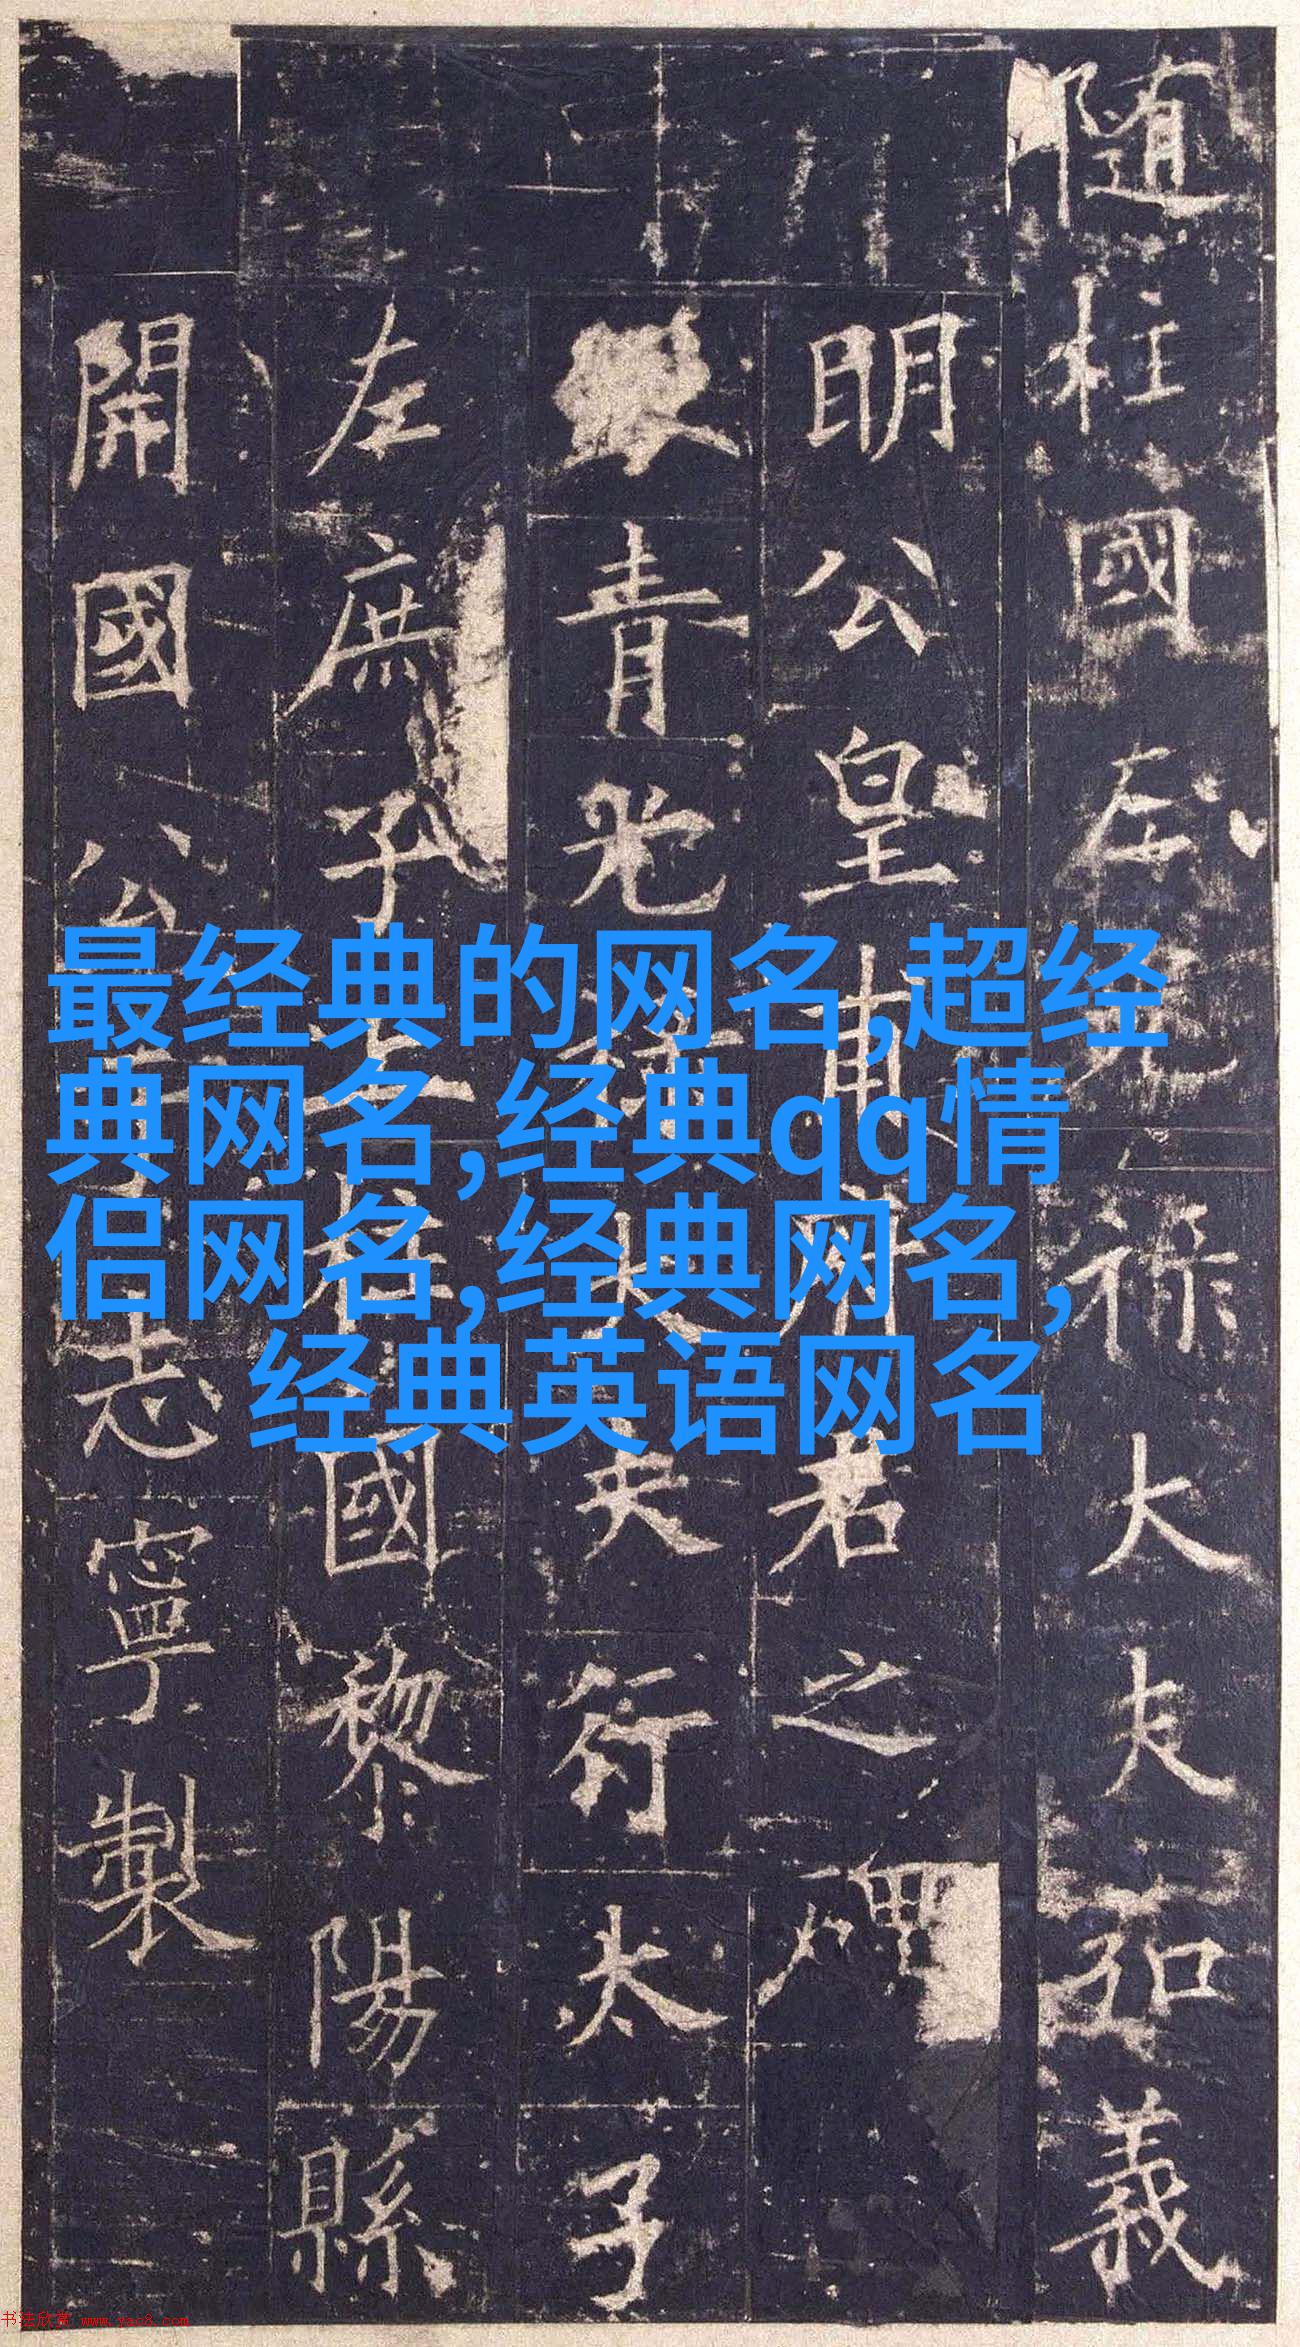 随柱國左光祿大夫弘義
明公皇甫府君之碑
銀青光祿大夫行太子
左庶子上柱國黎陽縣
開國公于志寧製
最经典的网名,超经
典网名,经典qq情
侣网名,经典网名,
经典英语网名
书法欣赏 www.yac8.com